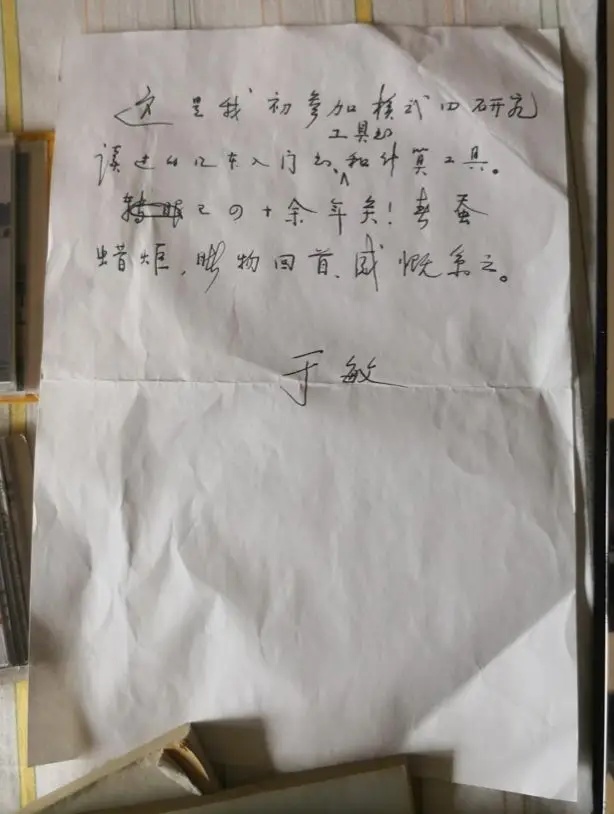 这是我初参加模式的研究
读过的几本入门书、工具书和计算工具。
转眼已四十余年矣！春蚕
蜡炬，睹物回首，感慨系之。
于敏